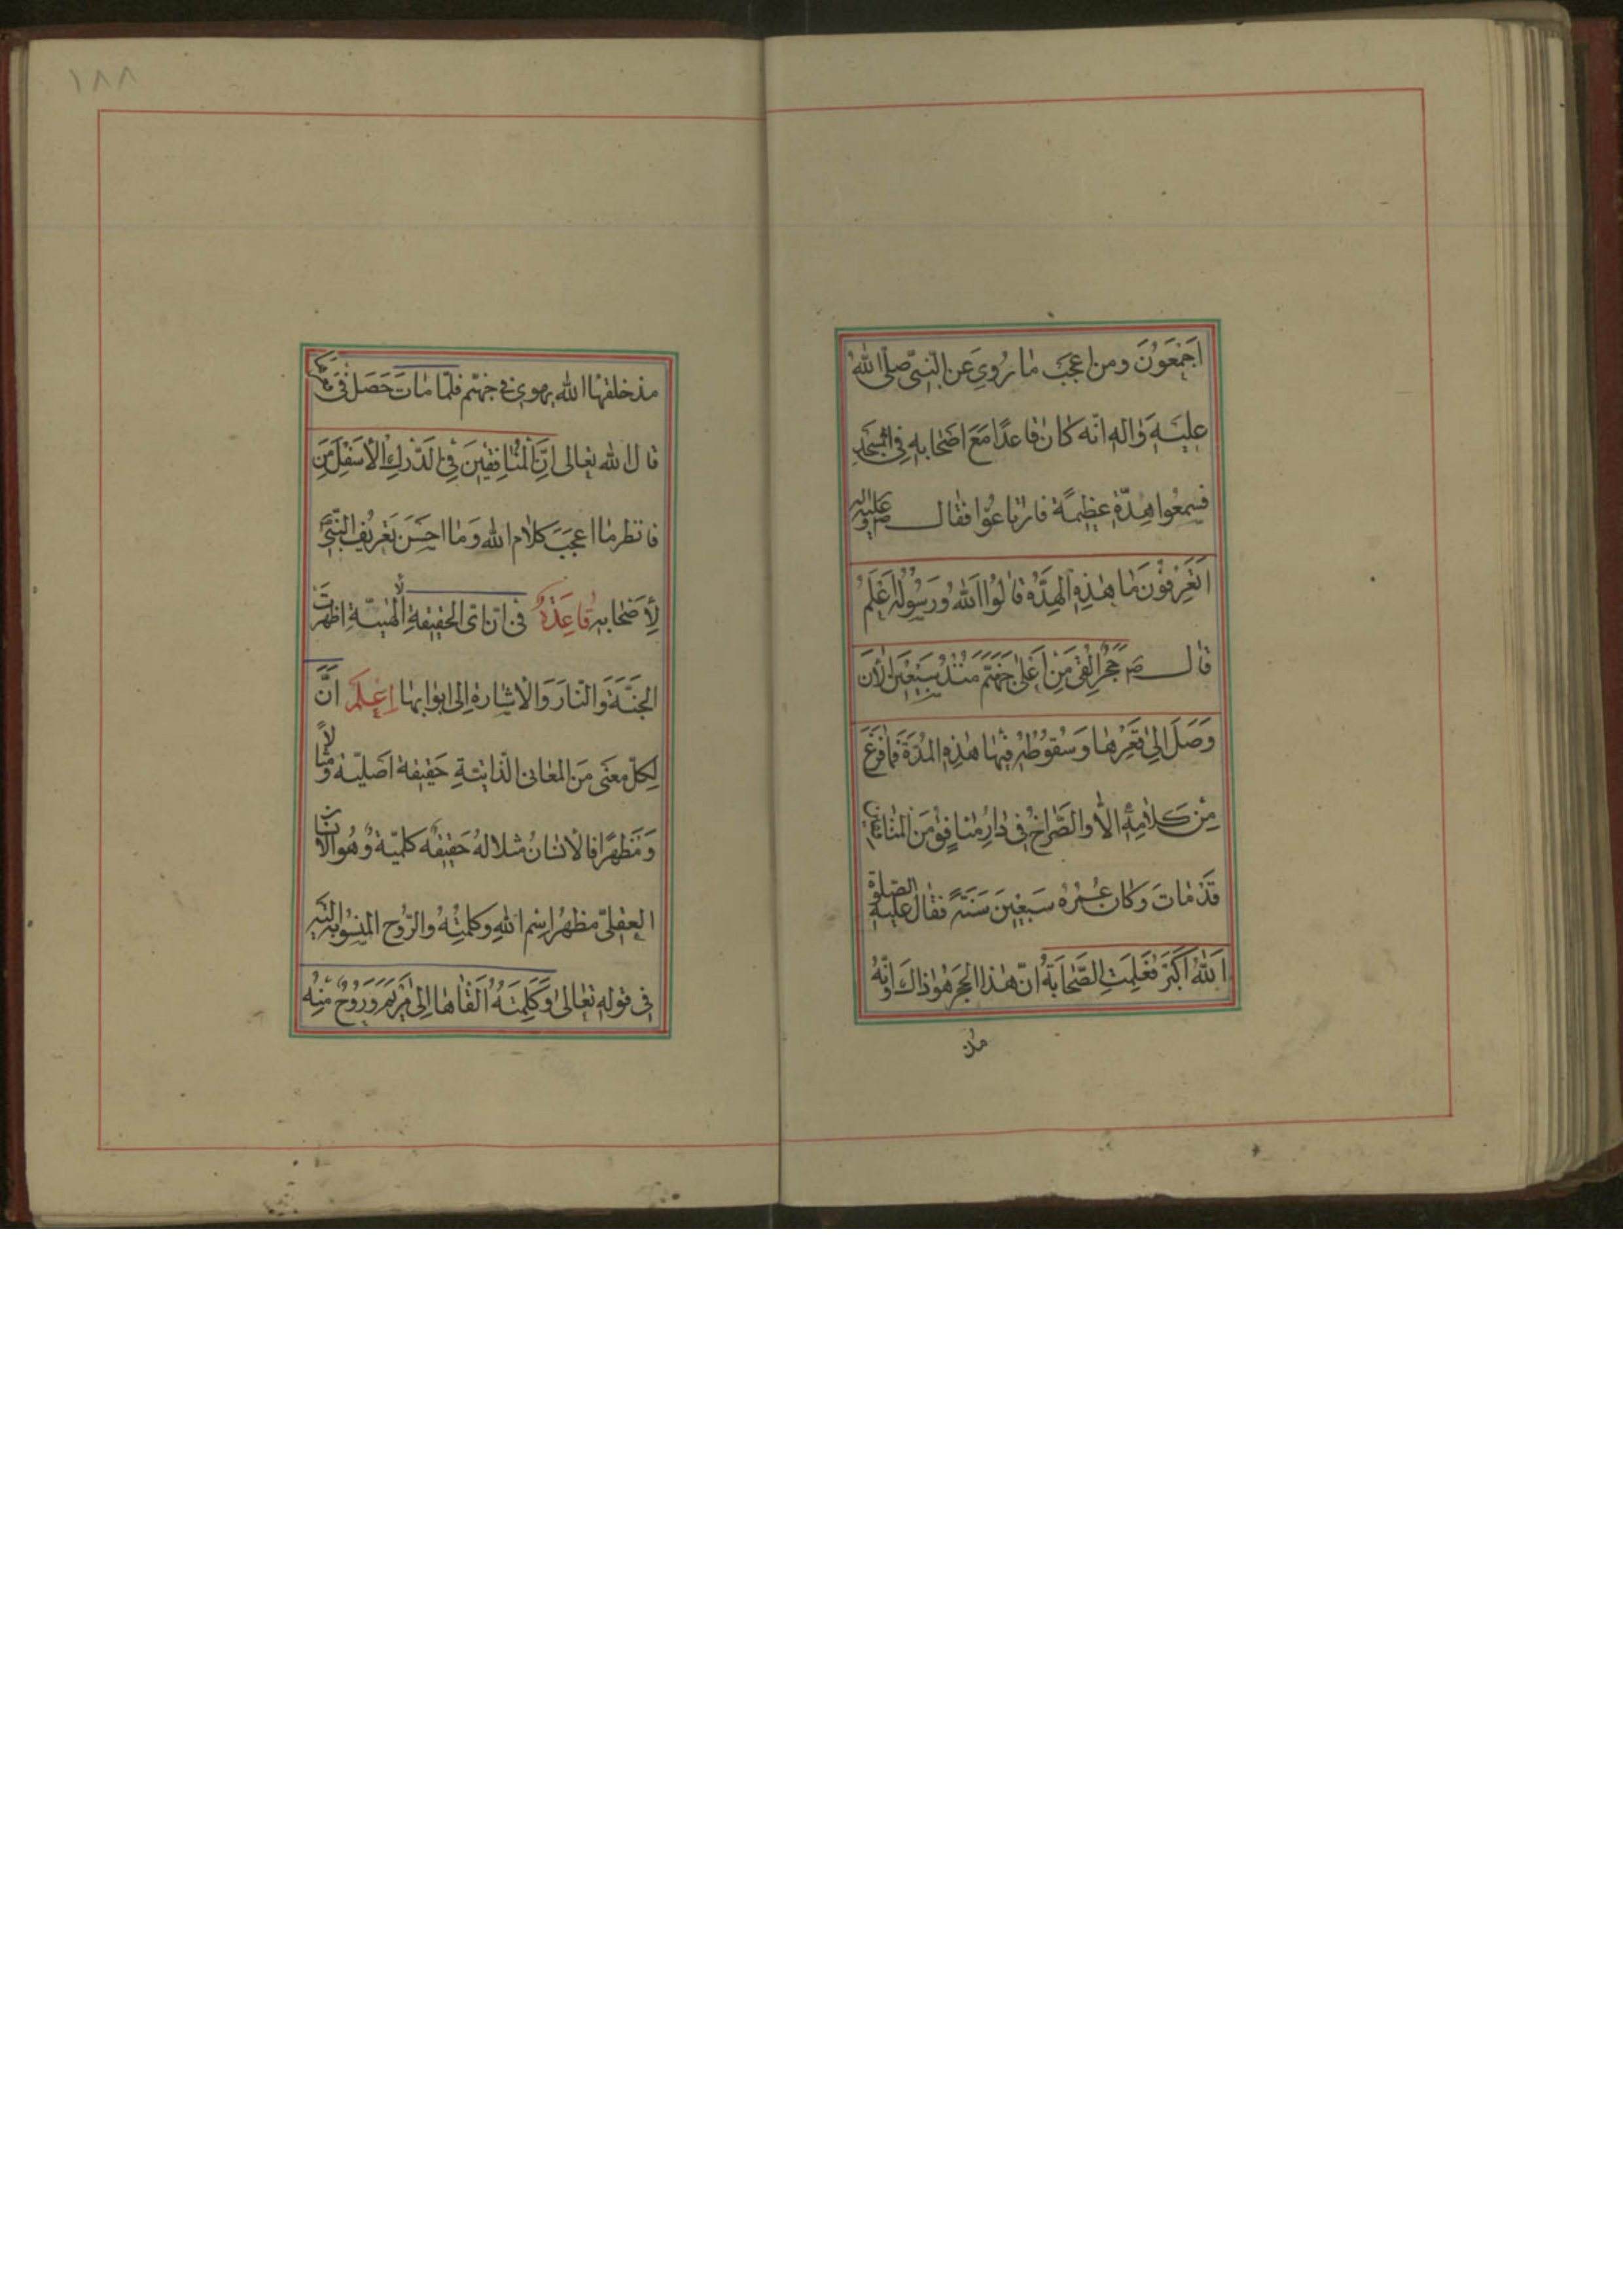 اَجْمَعُوْنَ ومن اعجَب مٰا رُوِیَ عَن النّبیّ صلّی اللّٰهُ
علیَهِ وَاله انّه كٰان قٰاعدًا مَعَ اصْحٰابه فِی المسْجَدِ
فسِمَعُوا هِدّة عظِیمَة فارتٰاعُوا فقٰال علیه واله
اَتَعْرِفُوْنَ مٰا هٰذِهِ الهِدَّهُ قٰالُوُا اَللّٰهُ وَ رَسُوُلُهُ اَعْلَمُ
قٰال ص حَجَرٌ اُلْقِیَ مِنْ اَعْلیٰ جَهَنّمَ مُنْذُ سَبْعیِن الاٰن
وَصَلَ اِلیٰ قَعْرِهٰا وَ سُقوُطُهُ فیِهٰا هٰذِهِ المُدَة فَمٰا فرَغَ
مِنْ كَلاٰمِهِ الاّ والصّرٰاخُ فی دٰارِ مُنٰافِقٍ مِنَ المنٰافقین
قَدْ مٰاتَ وَ كٰان عُمْرُهُ سَبْعیِنَ سَنَةً فقٰال علیه الصّلوة
اَللّٰهُ اَكْبَرُ فَعَلِمَتِ الصَّحٰابَةُ انّ هٰذا الحَجَر هُوَ ذٰاكَ وَ انّهُ
مذ
١٨٨
مذ خلقهٰا اللّٰه یهوی فی جهنّم فلمّا مٰاتَ حَصَل فی قعرها
قٰال اللّٰه تعٰالی اِنَّ الْمُنٰافِقیِنَ فیِ الدَّرْكِ الْأَسْفَلِ مِنَ
فانظر مٰا اعجَبَ كلاٰم اللّٰه وَ مٰا احسَنَ تَعْریُف النّبّی
لِأَصْحٰابهِ قٰاعِدَةٌ فی انّ ایّ الحقیقةِ الٰهیّةِ اظهَرتْ
الجنَّةَ وَ النّارَ وَ الْاشٰارة اِلی ابوٰابهٰا اِعْلَمْ انَّ
لِكلّ معنَی مِنَ المعٰانی الذّاتیّةِ حَقیِقة اَصْلیّة وَ مثٰالًا
وَ مَظهرًا فالْانسٰانُ مثلا لهُ حَقیقة كلّیّة وَ هُوَ الانسٰان
العقلیّ مظهرُ اسْم اللّٰهِ وَ كلمتُهُ وَ الرّوُح المنسوُب الیَه
فی قوله تعٰالیٰ وَ كَلِمَتُهُ اَلْقٰاهٰا اِلیٰ مَرْیَمَ وَ رُوُحٌ مِنْهُ